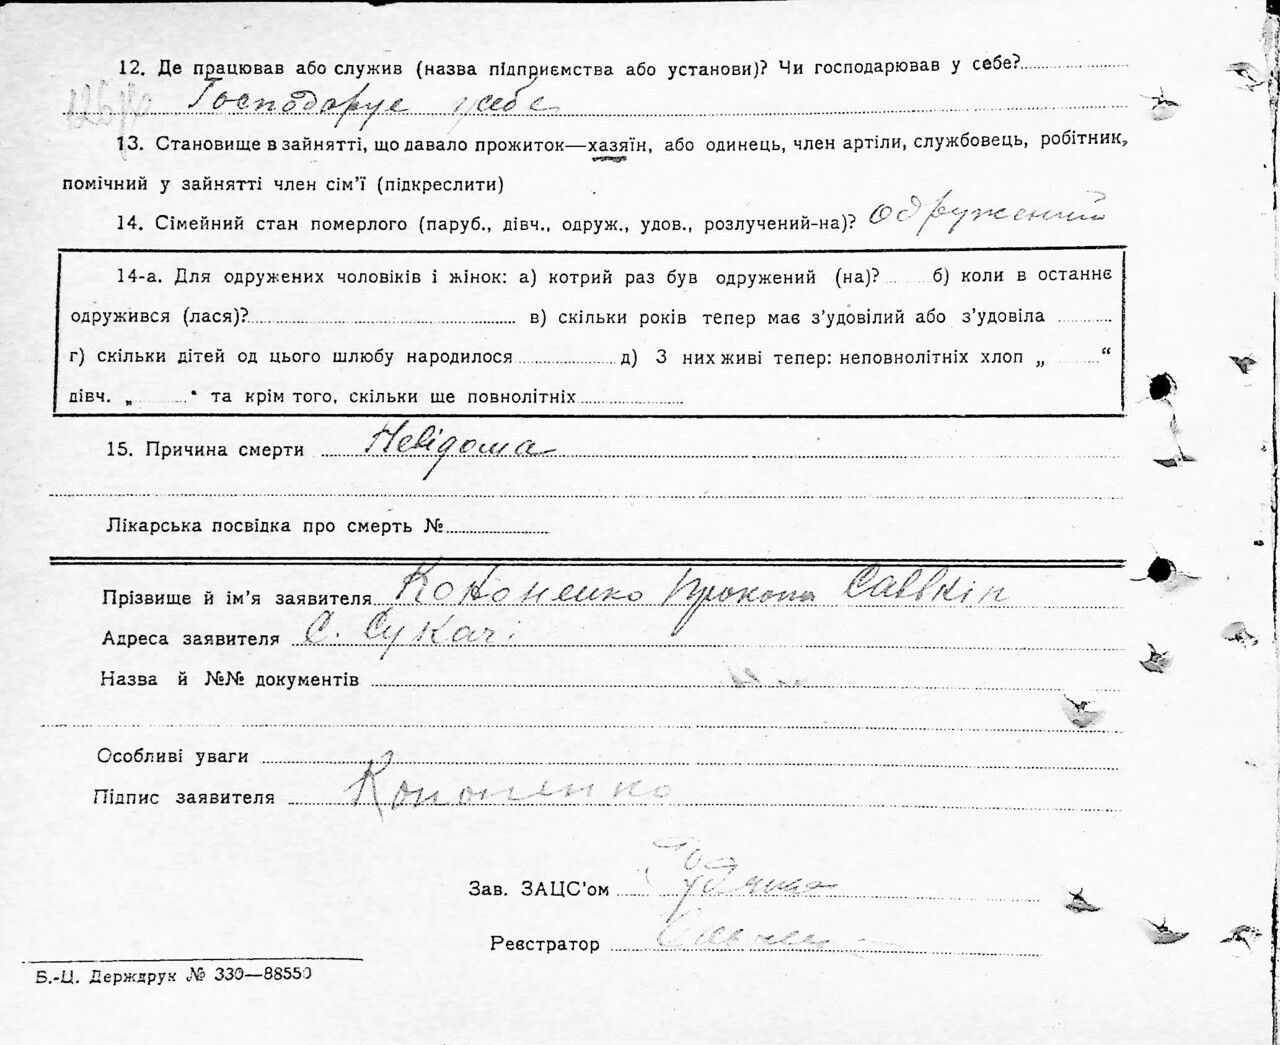 12. Де працював або служив (назва підприємства або установи)? Чи господарював у себе?
Господарує у себе
13. Становище в зайнятті, що давало прожиток—хазяїн, або одинець, член артіли, службовець, робітник,
помічний у зайнятті член сім'ї (підкреслити)
14. Сімейний стан померлого (паруб., дівч., одруж., удов., розлучений-на)? одружений
14-а. Для одружених чоловіків і жінок: а) котрий раз був одружений (на)? б) коли в останнє
одружився (лася)? в) скільки років тепер має з'удовілий або з'удовіла
г) скільки дітей од цього шлюбу народилося д) З них живі тепер: неповнолітніх хлоп „ “
дівч. „ “ та крім того, скільки ще повнолітніх
15. Причина смерти Невідома
Лікарська посвідка про смерть №
Прізвище й ім'я заявителя Кононенко Прокопа Саввкін
Адреса заявителя С. Сукачі
Назва й №№ документів
Особливі уваги
Підпис заявителя Кононенко
Зав. ЗАЦС'ом
Реєстратор
Б.-Ц. Держдрук № 330—88550